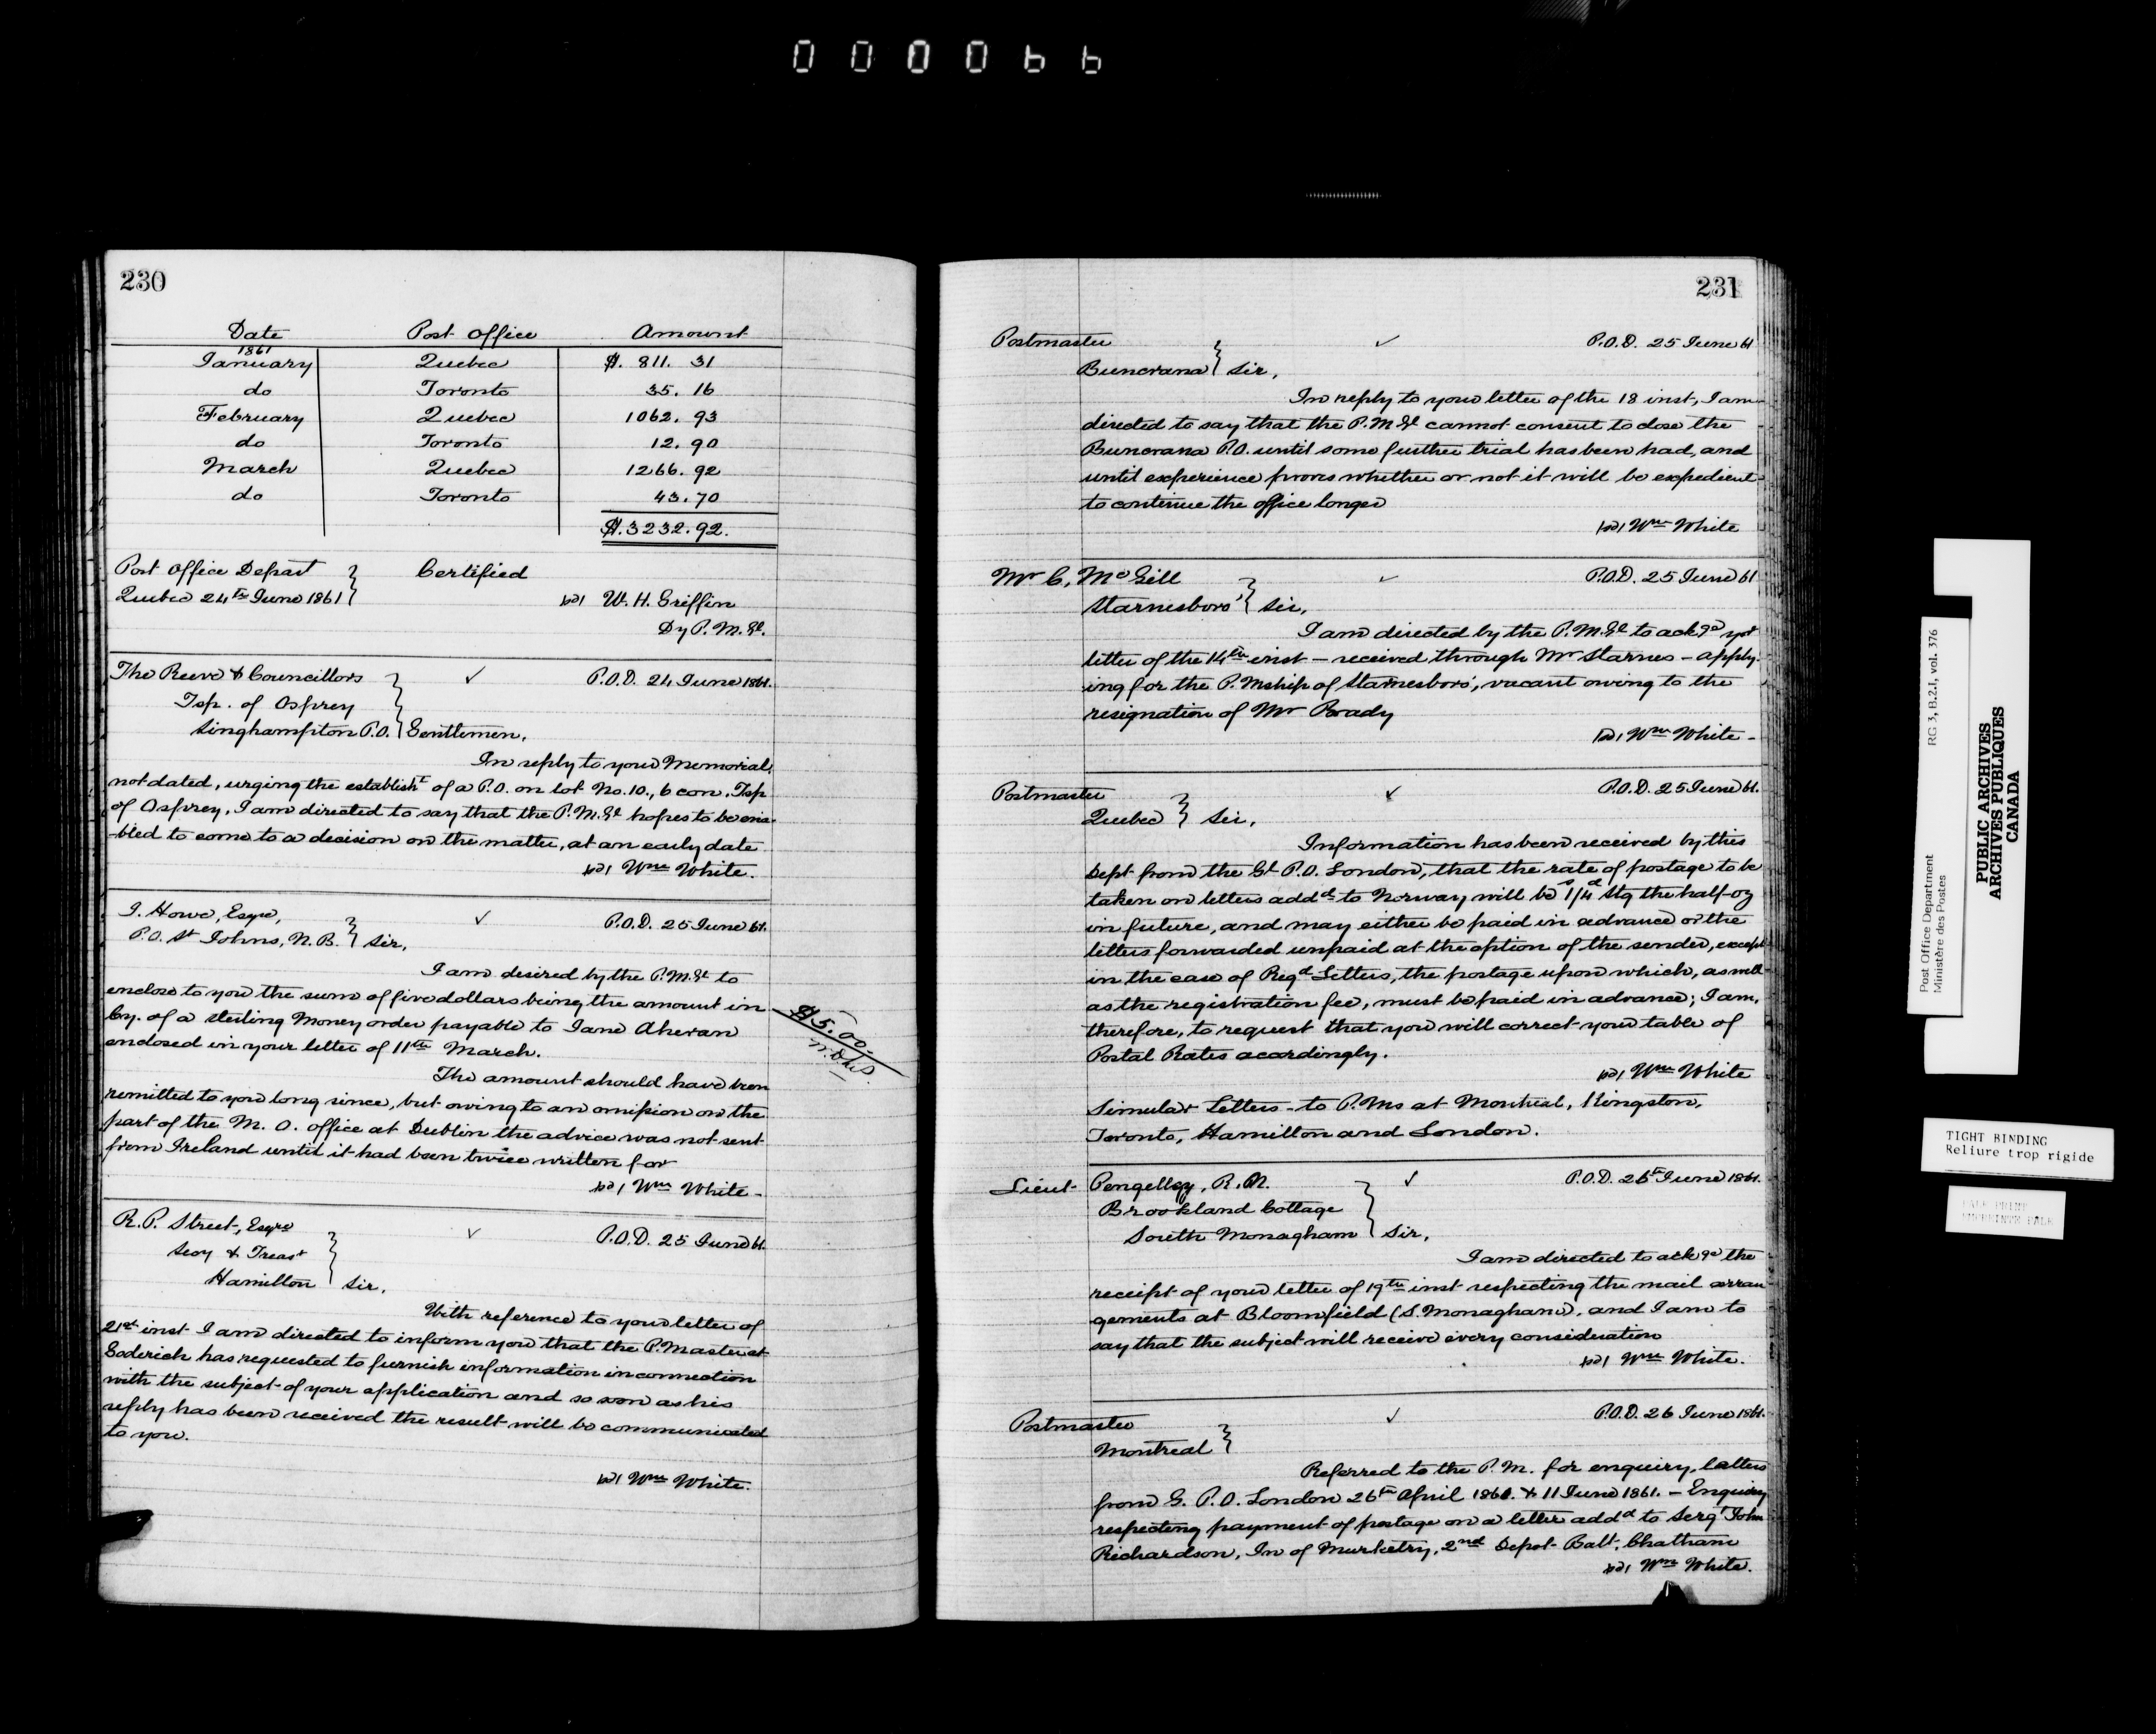 000066
230
Date Post Office Amount
1861
January Quebec $. 811. 31
do Toronto 35. 16
February Quebec 1062. 93
do Toronto 12. 90
March Quebec 1266. 92
do Toronto 43. 70
$. 3232. 92.
Post Office Depart
Quebec 24th June 1861 } Certified
W. H. Griffin
Dy P. M. Gl.
The Reeve & Councillors ✓ P.O.D. 24 June 1861.
Tsp. of Osprey
Singhampton P.O. } Gentlemen,
In reply to your Memorial,
not dated, urging the establisht of a P.O. on lot No. 10, 6 con. Tsp
of Osprey, I am directed to say that the P.M.Gl hopes to be ena-
-bled to come to a decision on the matter, at an early date
Wm White.
J. Howe, Esqre, ✓ P.O.D. 25 June 61.
P.O. St Johns, N.B. } Sir,
I am desired by the P.M.Gl to
enclose to you the sum of five dollars being the amount in
Cy. of a Sterling Money order payable to Jane Aheran
enclosed in your letter of 11th March.
$5.00.
The amount should have been
remitted to you long since, but owing to an omission on the
part of the M. O. office at Dublin the advice was not sent
from Ireland until it had been twice written for
Wm White -
R. P. Street, Esqre ✓ P.O.D. 25 June 61.
Secy & Treasr
Hamilton } Sir,
With reference to your letter of
21st inst I am directed to inform you that the P. Master at
Goderich has requested to furnish information in connection
with the subject of your application and so soon as his
reply has been received the result will be communicated
to you.
Wm White.
231
Postmaster ✓ P.O.D. 25 June 61
Buncrana } Sir,
In reply to your letter of the 18 inst, I am
directed to say that the P.M.Gl cannot consent to close the
Buncrana P.O. until some further trial has been had, and
until experience proves whether or not it will be expedient
to continue the office longer
Wm White
Mr C. McGill ✓ P.O.D. 25 June 61
Starnesboro' } Sir,
I am directed by the P.M.Gl to ackgd yr
letter of the 14th inst - received through Mr Starnes - apply-
ing for the P. Mship of Starnesboro', vacant owing to the
resignation of Mr Brady
Wm White -
Postmaster ✓ P.O.D. 25 June 61.
Quebec } Sir,
Information has been received by this
Dept from the Gl P.O. London, that the rate of postage to be
taken on letters addd to Norway will be 1s/4d Stg the half-oz
in future, and may either be paid in advance or the
letters forwarded unpaid at the option of the sender, except
in the case of Regd Letters, the postage upon which, as well
as the registration fee, must be paid in advance; I am,
therefore, to request that you will correct your table of
Postal Rates acordingly.
Wm White
Simular Letters to P.Ms at Montreal, Kingston,
Toronto, Hamilton and London.
Lieut Pengelley, R.N. ✓ P.O.D. 26th June 1861.
Brookland Cottage
South Monagham } Sir,
I am directed to ackge the
receipt of your letter of 19th inst respecting the mail arran-
gements at Bloomfield (S. Monaghan), and I am to
say that the subject will receive every consideration
Wm White.
Postmaster ✓ P.O.D. 26 June 1861.
Montreal }
Referred to the P.M. for enquiry, letters
from G. P.O. London 26th April 1861. & 11 June 1861. - Enquiry
respecting payment of postage on a letter addd to Sergt John
Richardson, In of Musketry, 2nd Depot Batt, Chatham
Wm White.
Post Office Department RG 3, B.2.1, vol. 376
Ministère des Postes
PUBLIC ARCHIVES
ARCHIVES PUBLIQUES
CANADA
TIGHT BINDING
Reliure trop rigide